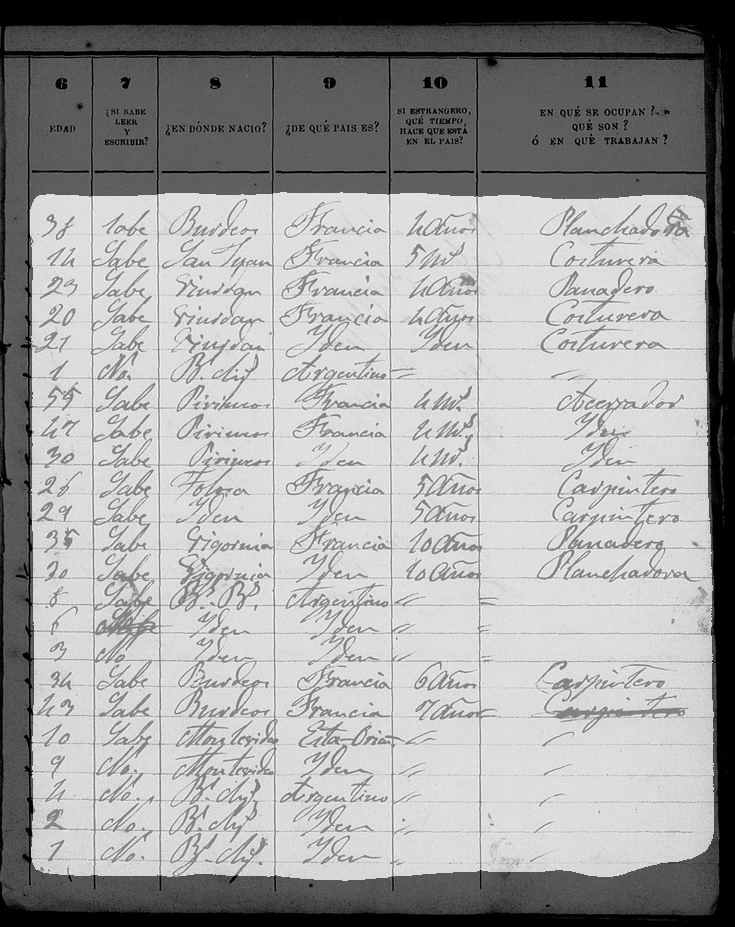 6 7 8 9 10 11
EDAD ¿SI SABE LEER Y ESCRIBIR? ¿EN DÓNDE NACIO? ¿DE QUÉ PAIS ES? SI ESTRANGERO, QUÉ TIEMPO HACE QUE ESTÁ EN EL PAIS? EN QUÉ SE OCUPAN? QUÉ SON? Ó EN QUÉ TRABAJAN?
38 Sabe Burdeos Francia 4 Años Planchadora
14 Sabe San Francia 5 Costurera
23 Sabe Francia 4 Años Panadero
20 Sabe Francia 4 Años Costurera
21 Sabe Yden Yden Costurera
1 No. Argentino "
55 Sabe Pirineos Francia Acerrador
47 Sabe Pirineos Francia Yden
30 Sabe Pirineos Yden Yden
26 Sabe Tolosa Francia 5 Años Carpintero
29 Sabe Yden Yden 5 Años Carpintero
35 Sabe Francia 10 Años Panadero
30 Sabe Yden 10 Años Planchadora
8 Sabe Bs. As. Argentino " "
6 Yden Yden " "
3 No Yden Yden " "
34 Sabe Burdeos Francia 6 Años Carpintero
43 Sabe Burdeos Francia 7 Años Carpintero
10 Sabe Montevideo " "
9 No. Montevideo Yden " "
4 No. Argentino " "
2 No. Yden " "
1 No. Yden " "